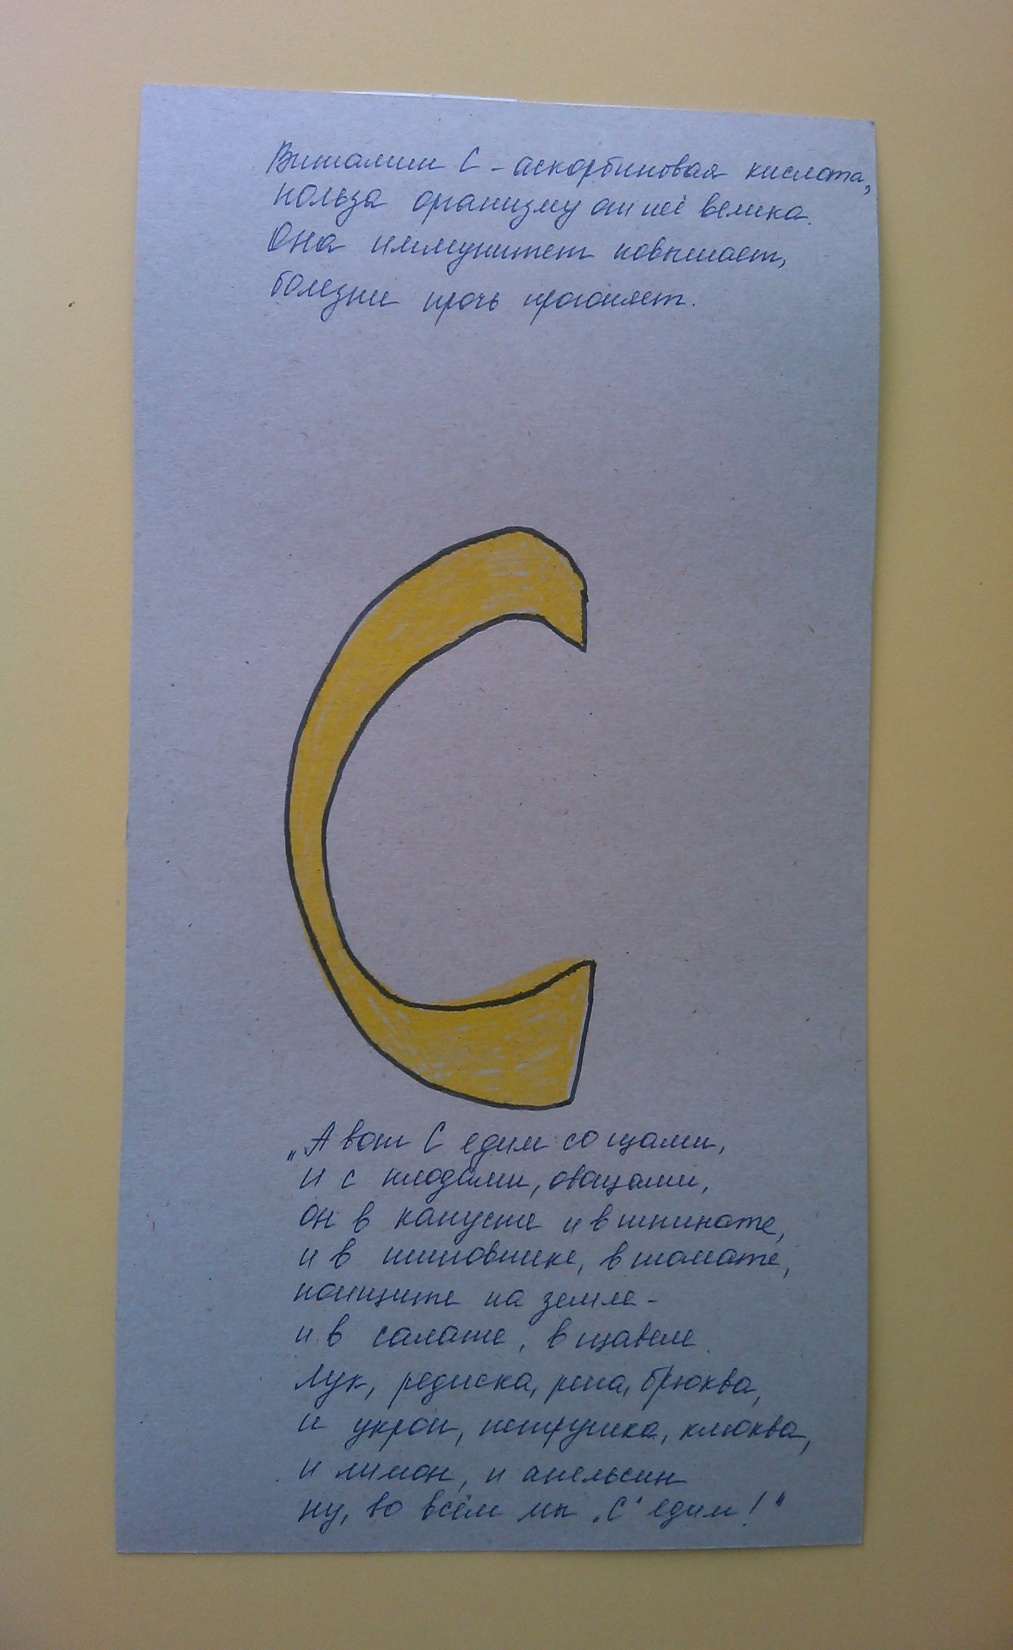 Витамин С - аскорбиновая кислота,
польза организму от неё велика.
Она иммунитет повышает,
болезни прочь прогоняет.
С
„А вот С едим со щами,
и с плодами, овощами,
он в капусте и в шпинате,
и в шиповнике, в томате,
поищите на земле -
и в салате, в щавеле.
Лук, редиска, репа, брюква,
и укроп, петрушка, клюква,
и лимон, и апельсин
ну, во всём мы „С“ едим!"